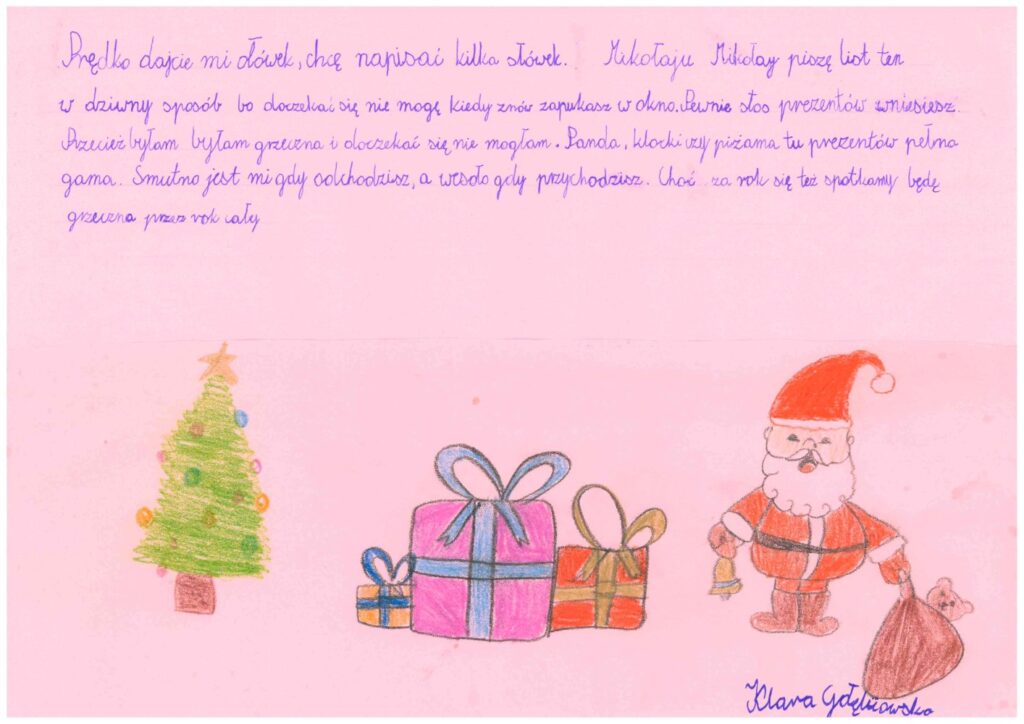 Prędko dajcie mi ołówek, chcę napisać kilka słówek. Mikołaju Mikołay piszę list ten
w dziwny sposób bo doczekać się nie mogę kiedy znów zapukasz w okno. Pewnie stos prezentów wniesiesz.
Przecież byłam byłam grzeczna i doczekać się nie mogłam. Panda, klocki czy piżama tu prezentów pełna
gama. Smutno jest mi gdy odchodzisz, a wesoło gdy przychodzisz. Choć za rok się też spotkamy będę
grzeczna przez rok cały
Klara